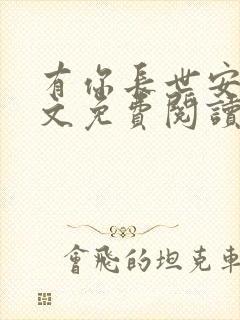 有你長世安
文免費閱讀
會飛的坦克車